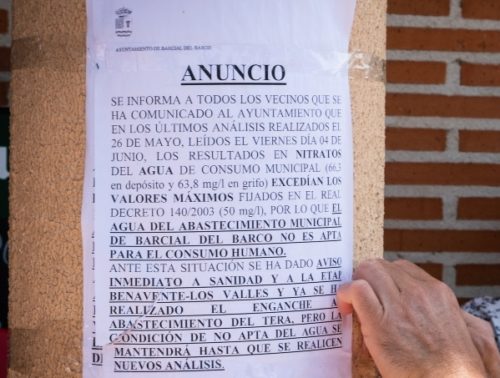 AYUNTAMIENTO DE BARCIAL DEL BARCO
ANUNCIO
SE INFORMA A TODOS LOS VECINOS QUE SE
HA COMUNICADO AL AYUNTAMIENTO QUE
EN LOS ÚLTIMOS ANÁLISIS REALIZADOS EL
26 DE MAYO, LEÍDOS EL VIERNES DÍA 04 DE
JUNIO, LOS RESULTADOS EN NITRATOS
DEL AGUA DE CONSUMO MUNICIPAL (66,3
en depósito y 63,8 mg/l en grifo) EXCEDÍAN LOS
VALORES MÁXIMOS FIJADOS EN EL REAL
DECRETO 140/2003 (50 mg/l), POR LO QUE EL
AGUA DEL ABASTECIMIENTO MUNICIPAL
DE BARCIAL DEL BARCO NO ES APTA
PARA EL CONSUMO HUMANO.
ANTE ESTA SITUACIÓN SE HA DADO AVISO
INMEDIATO A SANIDAD Y A LA ETAP
BENAVENTE-LOS VALLES Y YA SE H
REALIZADO EL ENGANCHE A
ABASTECIMIENTO DEL TERA, PERO LA
CONDICIÓN DE NO APTA DEL AGUA SE
MANTENDRÁ HASTA QUE SE REALICEN
NUEVOS ANÁLISIS.